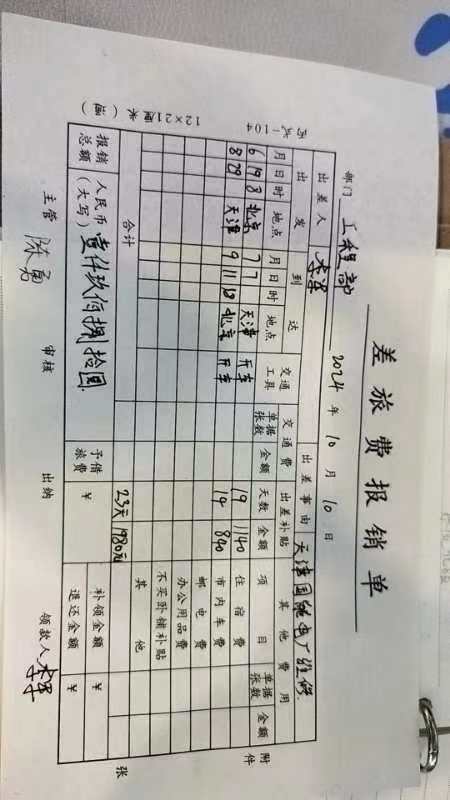 差旅费报销单
部门 工程部 2024年10月10日
出差人 李军 出差事由 天津国能电厂维修
出发 到达 交通工具 交通费 出差补贴 其他费用
月 日 时 地点 月 日 时 地点 单据张数 金额 天数 金额 项目 单据张数 金额
6 19 8 北京 7 7 天津 开车 19 1140 住宿费
8 29 天津 9 11 18 北京 开车 14 840 市内车费
邮电费
办公用品费
不买卧铺补贴
其他
合计 23天 1980元
报销总额 人民币(大写) 壹仟玖佰捌拾圆 予借旅费 ¥ 补领金额 ¥
退还金额 ¥
主管 陈勇 审核 出纳 领款人 李军
附件 张
丙式-104 12×21厘米(函)